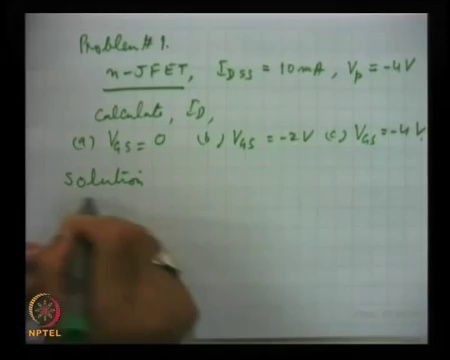 Problem # 1.
n-JFET, IDSS = 10mA, Vp = -4V
Calculate, ID,
(a) VGS = 0 (b) VGS = -2V (c) VGS = -4V.
Solution
NPTEL